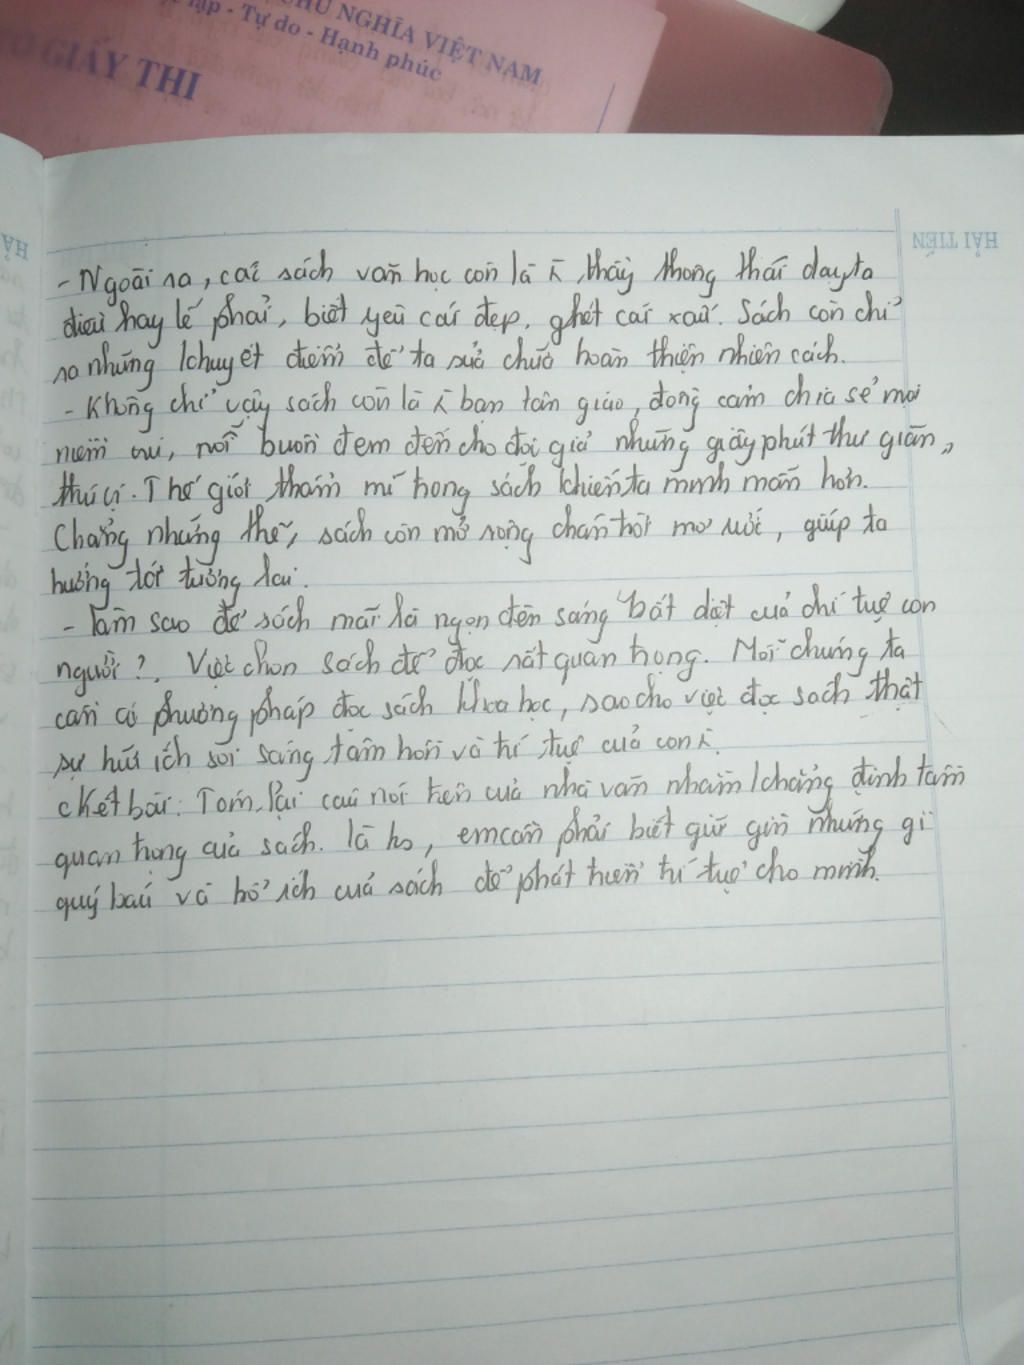 CHỦ NGHĨA VIỆT NAM
lập - Tự do - Hạnh phúc
GIẤY THI
HẢI TIẾN
HẢ
- Ngoài ra, các sách văn học còn là thầy thông thái dạy ta
điều hay lẽ phải, biết yêu cái đẹp, ghét cái xấu. Sách còn chỉ
ra những khuyết điểm để ta sửa chữa hoàn thiện nhiên cách.
- Không chỉ vậy sách còn là bạn tân giáo, đồng cảm chia sẻ mọi
niềm vui, nỗi buồn đem đến cho đọi giả những giây phút thư giãn,
thú vị. Thế giới thẩm mĩ trong sách khiến ta minh mẫn hơn.
Chẳng những thế, sách còn mở rộng chân trời mơ ước, giúp ta
hướng tới tương lai.
- Làm sao để sách mãi là ngọn đèn sáng bất diệt của chí tuệ con
người?. Việc chọn sách để đọc rất quan trọng. Mỗi chúng ta
cần có phương pháp đọc sách khoa học, sao cho việc đọc sách thật
sự hữu ích soi sáng tâm hồn và trí tuệ của con
Kết bài: Tóm lại câu nói trên của nhà văn nhằm khẳng định tầm
quan trọng của sách. là hs, em cần phải biết giữ gìn những gì
quý báu và bổ ích của sách để phát triển trí tuệ cho mình.